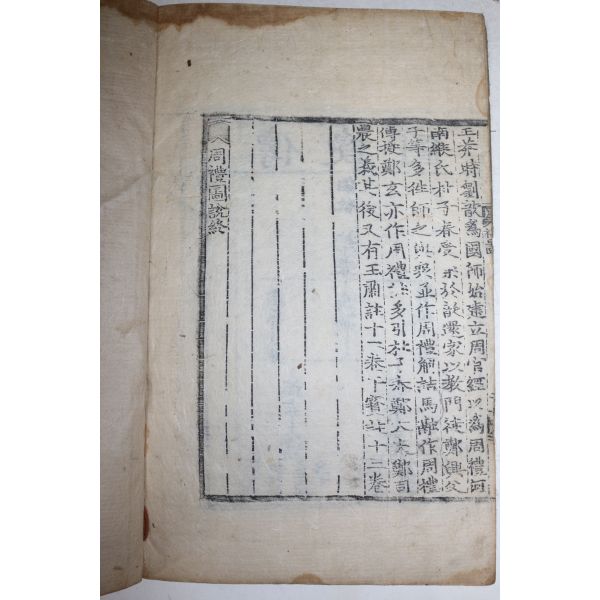 王莽時劉歆爲國師始建立周官經以爲周禮河
南緱氏杜子春受業於歆還家以教門徒鄭興父
子等多徃師之賈景並作周禮解詁馬融作周禮
傳授鄭玄亦作周禮註多引杜子春鄭大夫鄭司
農之義其後又有王肅註十一卷干寶註十二卷
周禮圖說終